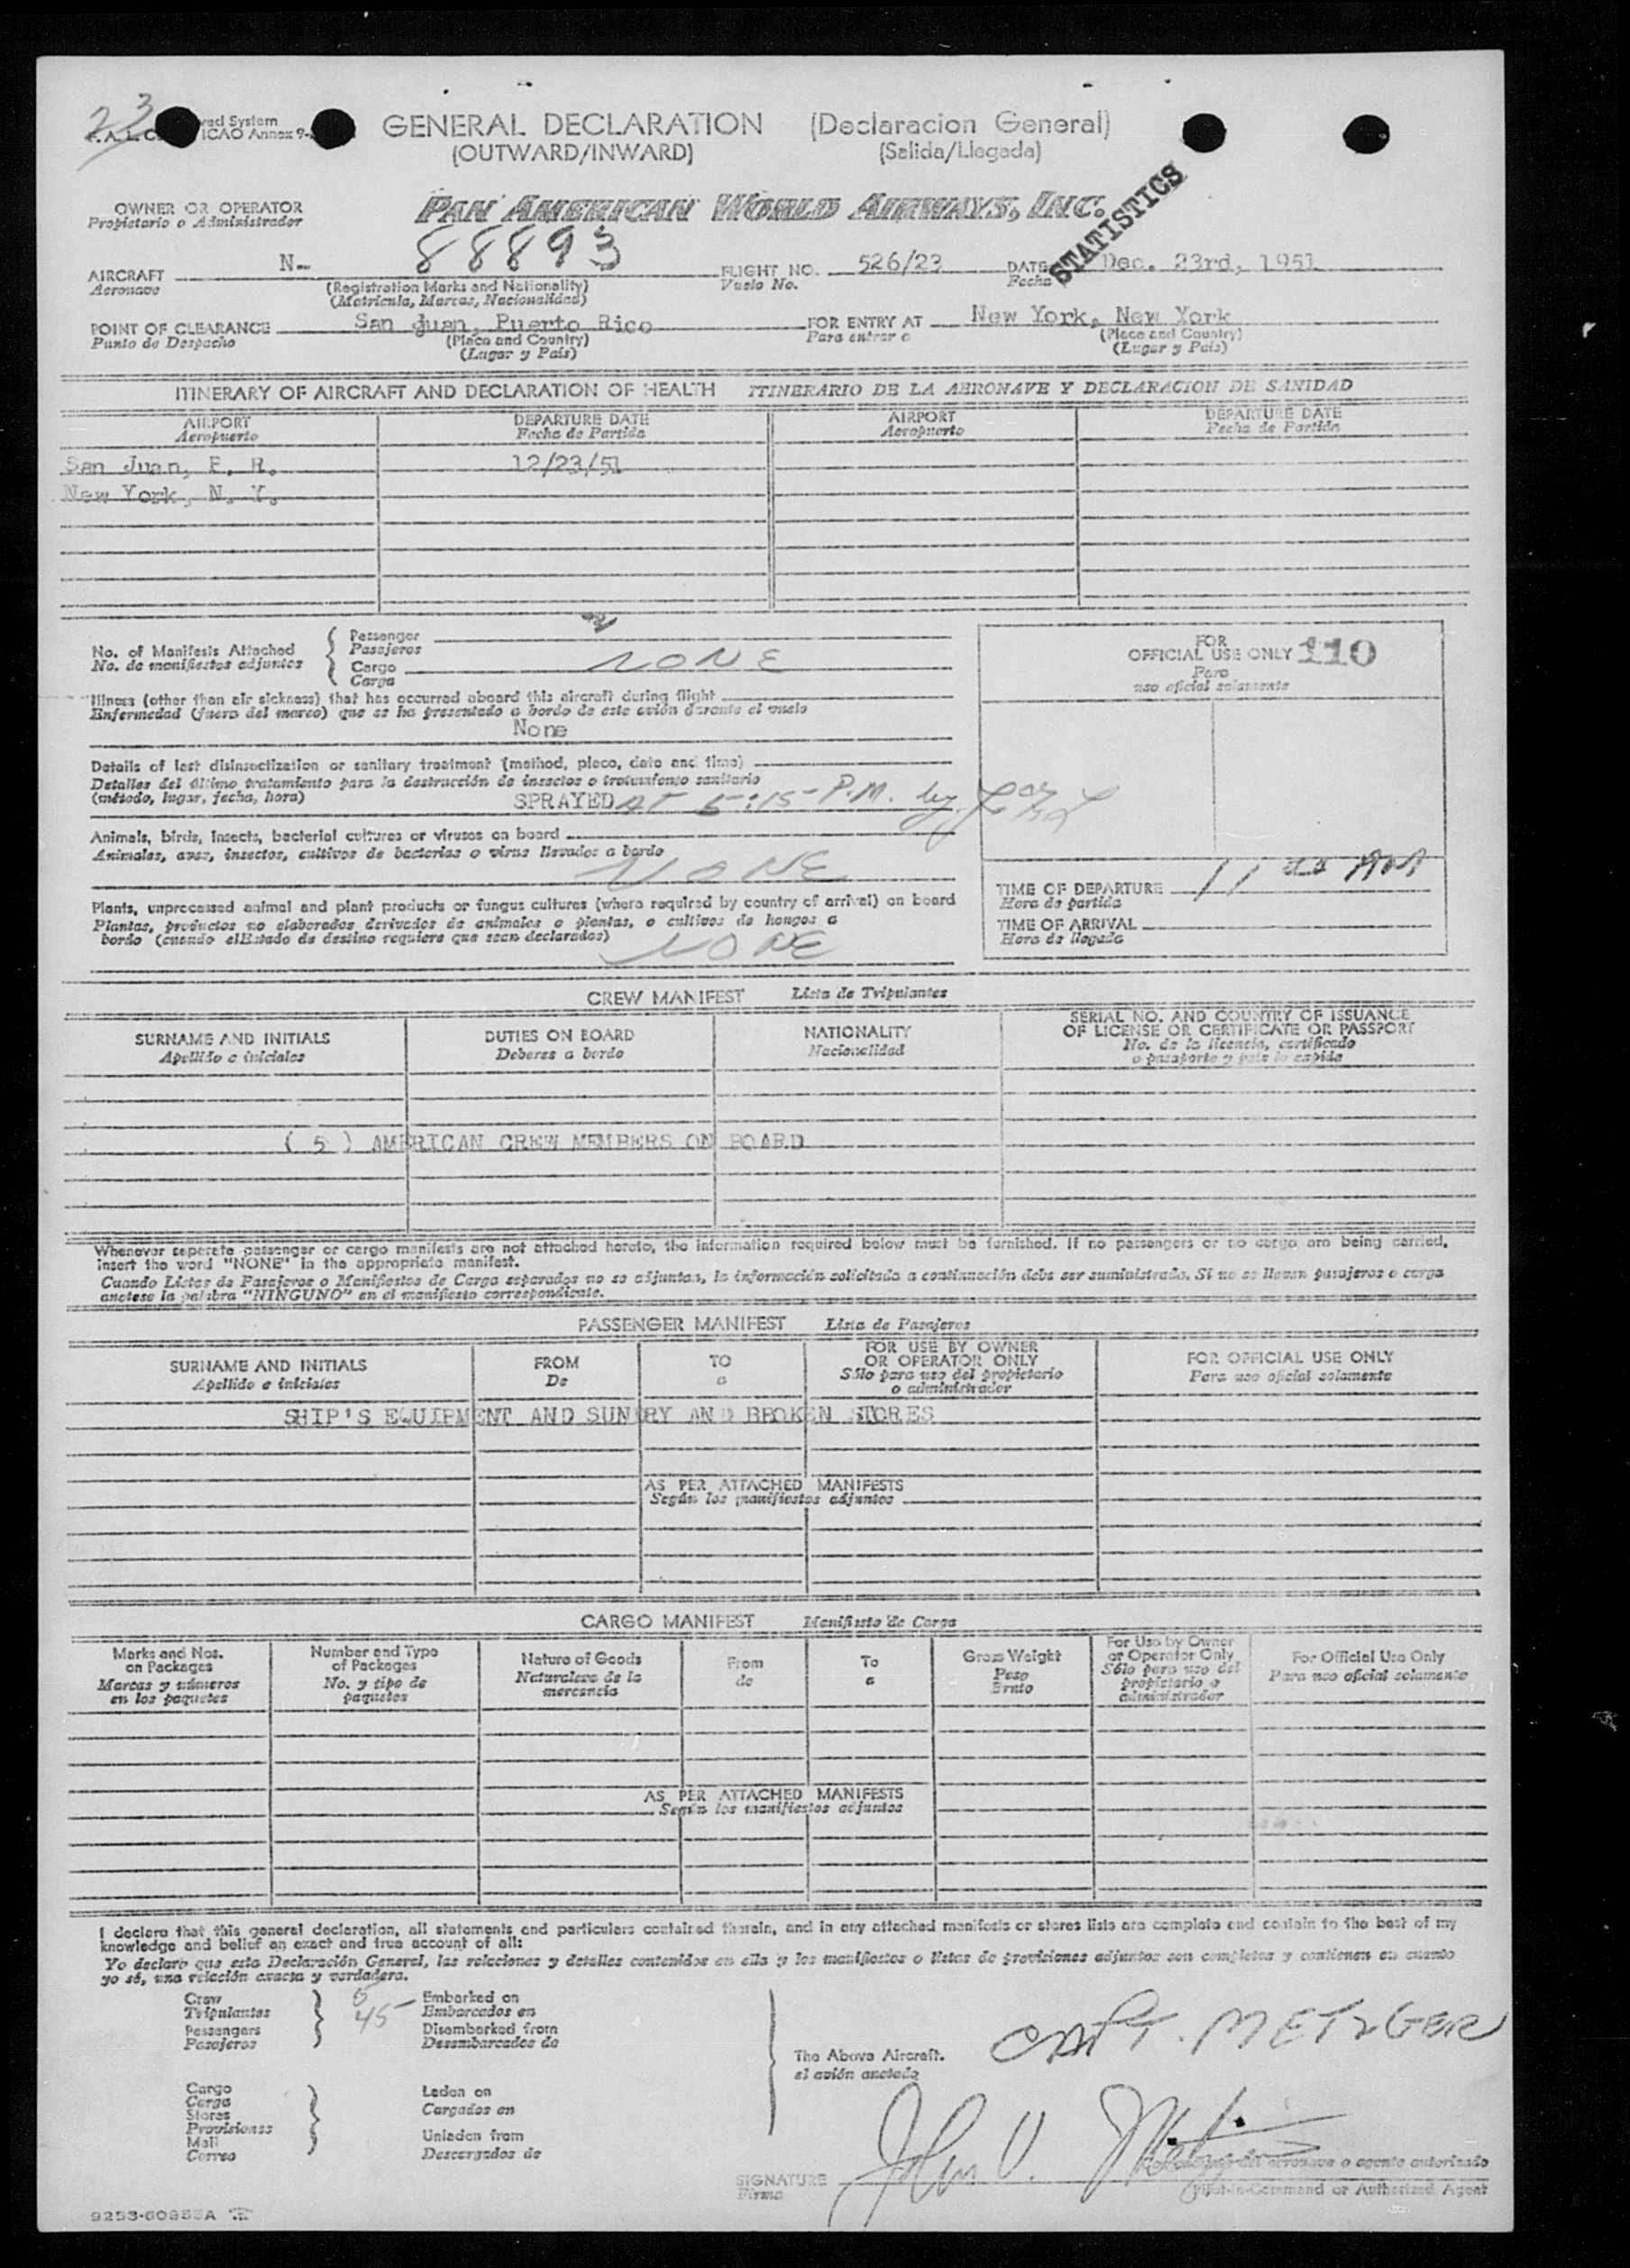 23
ved System
F.A.L.C. ICAO Annex 9-
GENERAL DECLARATION (Declaracion General)
(OUTWARD/INWARD) (Salida/Llegada)
STATISTICS
OWNER OR OPERATOR PAN AMERICAN WORLD AIRWAYS, INC.
Propietario o Administrador
AIRCRAFT N- 88893 FLIGHT NO. 526/23 DATE Dec. 23rd, 1951
Aeronave (Registration Marks and Nationality) Vuelo No. Fecha
(Matricula, Marcas, Nacionalidad)
POINT OF CLEARANCE San Juan, Puerto Rico FOR ENTRY AT New York, New York
Punto de Despacho (Place and Country) Para entrar a (Place and Country)
(Lugar y País) (Lugar y País)
ITINERARY OF AIRCRAFT AND DECLARATION OF HEALTH ITINERARIO DE LA AERONAVE Y DECLARACION DE SANIDAD
AIRPORT DEPARTURE DATE AIRPORT DEPARTURE DATE
Aeropuerto Fecha de Partida Aeropuerto Fecha de Partida
San Juan, P. R. 12/23/51
New York, N. Y.
No. of Manifests Attached Passenger 2
No. de manifiestos adjuntos Pasajeros
Cargo NONE
Carga
FOR
OFFICIAL USE ONLY 110
Para
uso oficial solamente
Illness (other than air sickness) that has occurred aboard this aircraft during flight
Enfermedad (fuera del mareo) que se ha presentado a bordo de este avión durante el vuelo
None
Details of last disinsectization or sanitary treatment (method, place, date and time)
Detalles del último tratamiento para la destrucción de insectos o tratamiento sanitario
(método, lugar, fecha, hora) SPRAYED AT 5:15 P.M. by
Animals, birds, insects, bacterial cultures or viruses on board
Animales, aves, insectos, cultivos de bacterias o virus llevados a bordo
NONE
TIME OF DEPARTURE 11
Hora de partida
Plants, unprocessed animal and plant products or fungus cultures (where required by country of arrival) on board
Plantas, productos no elaborados derivados de animales o plantas, o cultivos de hongos a
bordo (cuando el Estado de destino requiere que sean declarados) NONE
TIME OF ARRIVAL
Hora de llegada
CREW MANIFEST Lista de Tripulantes
SURNAME AND INITIALS DUTIES ON BOARD NATIONALITY SERIAL NO. AND COUNTRY OF ISSUANCE
OF LICENSE OR CERTIFICATE OR PASSPORT
Apellido e iniciales Deberes a bordo Nacionalidad No. de la licencia, certificado
o pasaporte y país lo expide
( 5 ) AMERICAN CREW MEMBERS ON BOARD
Whenever separate passenger or cargo manifests are not attached hereto, the information required below must be furnished. If no passengers or no cargo are being carried,
insert the word "NONE" in the appropriate manifest.
Cuando Listas de Pasajeros o Manifiestos de Carga separados no se adjuntan, la información solicitada a continuación debe ser suministrada. Si no se llevan pasajeros o carga
anotese la palabra "NINGUNO" en el manifiesto correspondiente.
PASSENGER MANIFEST Lista de Pasajeros
SURNAME AND INITIALS FROM TO FOR USE BY OWNER
OR OPERATOR ONLY FOR OFFICIAL USE ONLY
Apellido e iniciales De a Sólo para uso del propietario
o administrador Para uso oficial solamente
SHIP'S EQUIPMENT AND SUNDRY AND BROKEN STORES
AS PER ATTACHED MANIFESTS
Según los manifiestos adjuntos
CARGO MANIFEST Manifiesto de Carga
Marks and Nos.
on Packages
Marcas y números
en los paquetes
Number and Type
of Packages
No. y tipo de
paquetes
Nature of Goods
Naturaleza de la
mercancía
From
de
To
a
Gross Weight
Peso
Bruto
For Use by Owner
or Operator Only
Sólo para uso del
propietario o
administrador
For Official Use Only
Para uso oficial solamente
AS PER ATTACHED MANIFESTS
Según los manifiestos adjuntos
I declare that this general declaration, all statements and particulars contained therein, and in any attached manifests or stores lists are complete and contain to the best of my
knowledge and belief an exact and true account of all:
Yo declaro que esta Declaración General, las relaciones y detalles contenidos en ella y los manifiestos o listas de provisiones adjuntos son completos y contienen en cuanto
yo sé, una relación exacta y verdadera.
Crew 5 Embarked on
Tripulantes 45 Embarcados en
Passengers Disembarked from
Pasajeros Desembarcados de
CAPT. METZGER
The Above Aircraft.
el avión anotado
Cargo Laden on
Carga Cargados en
Stores
Provisiones Unladen from
Mail Descargados de
Correo
John V. Metzger
aeronave o agente autorizado
SIGNATURE
Firma Pilot-in-Command or Authorized Agent
9253-60955A